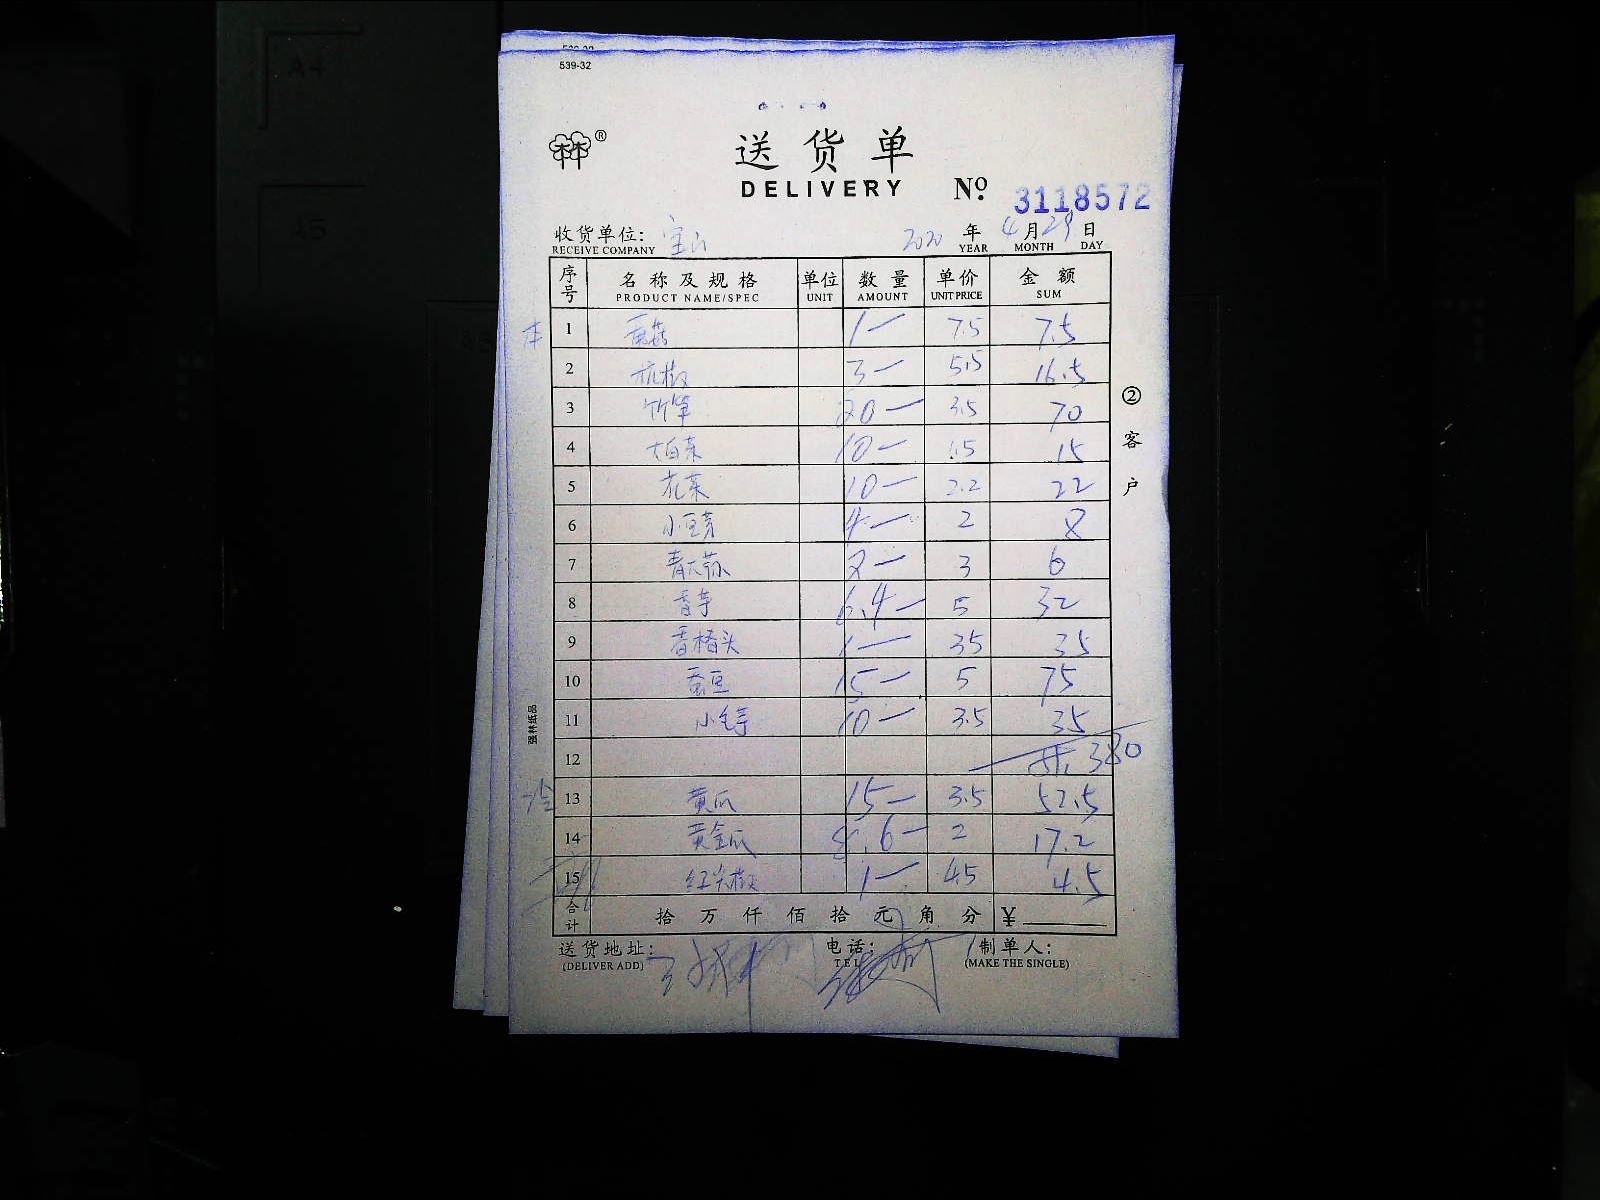 539-32
送货单
DELIVERY
No. 3118572
收货单位: 宝山 2020 年 4 月 29 日
RECEIVE COMPANY YEAR MONTH DAY
序号 名称及规格 单位 数量 单价 金额
PRODUCT NAME/SPEC UNIT AMOUNT UNIT PRICE SUM
本 1 1— 7.5 7.5
2 杭椒 3— 5.5 16.5
3 竹笋 20— 3.5 70
4 大白菜 10— 1.5 15
5 花菜 10— 2.2 22
6 小豆芽 4— 2 8
7 青大蒜 2— 3 6
8 香芋 6.4— 5 32
9 1— 35 35
10 蚕豆 15— 5 75
11 10— 3.5 35
12 380
冷 13 黄瓜 15— 3.5 52.5
14 黄金瓜 8.6— 2 17.2
15 红尖椒 1— 4.5 4.5
合计 拾万仟佰拾元角分 ¥
送货地址: 电话: 制单人:
(DELIVER ADD) TEL (MAKE THE SINGLE)
② 客户
强林纸品